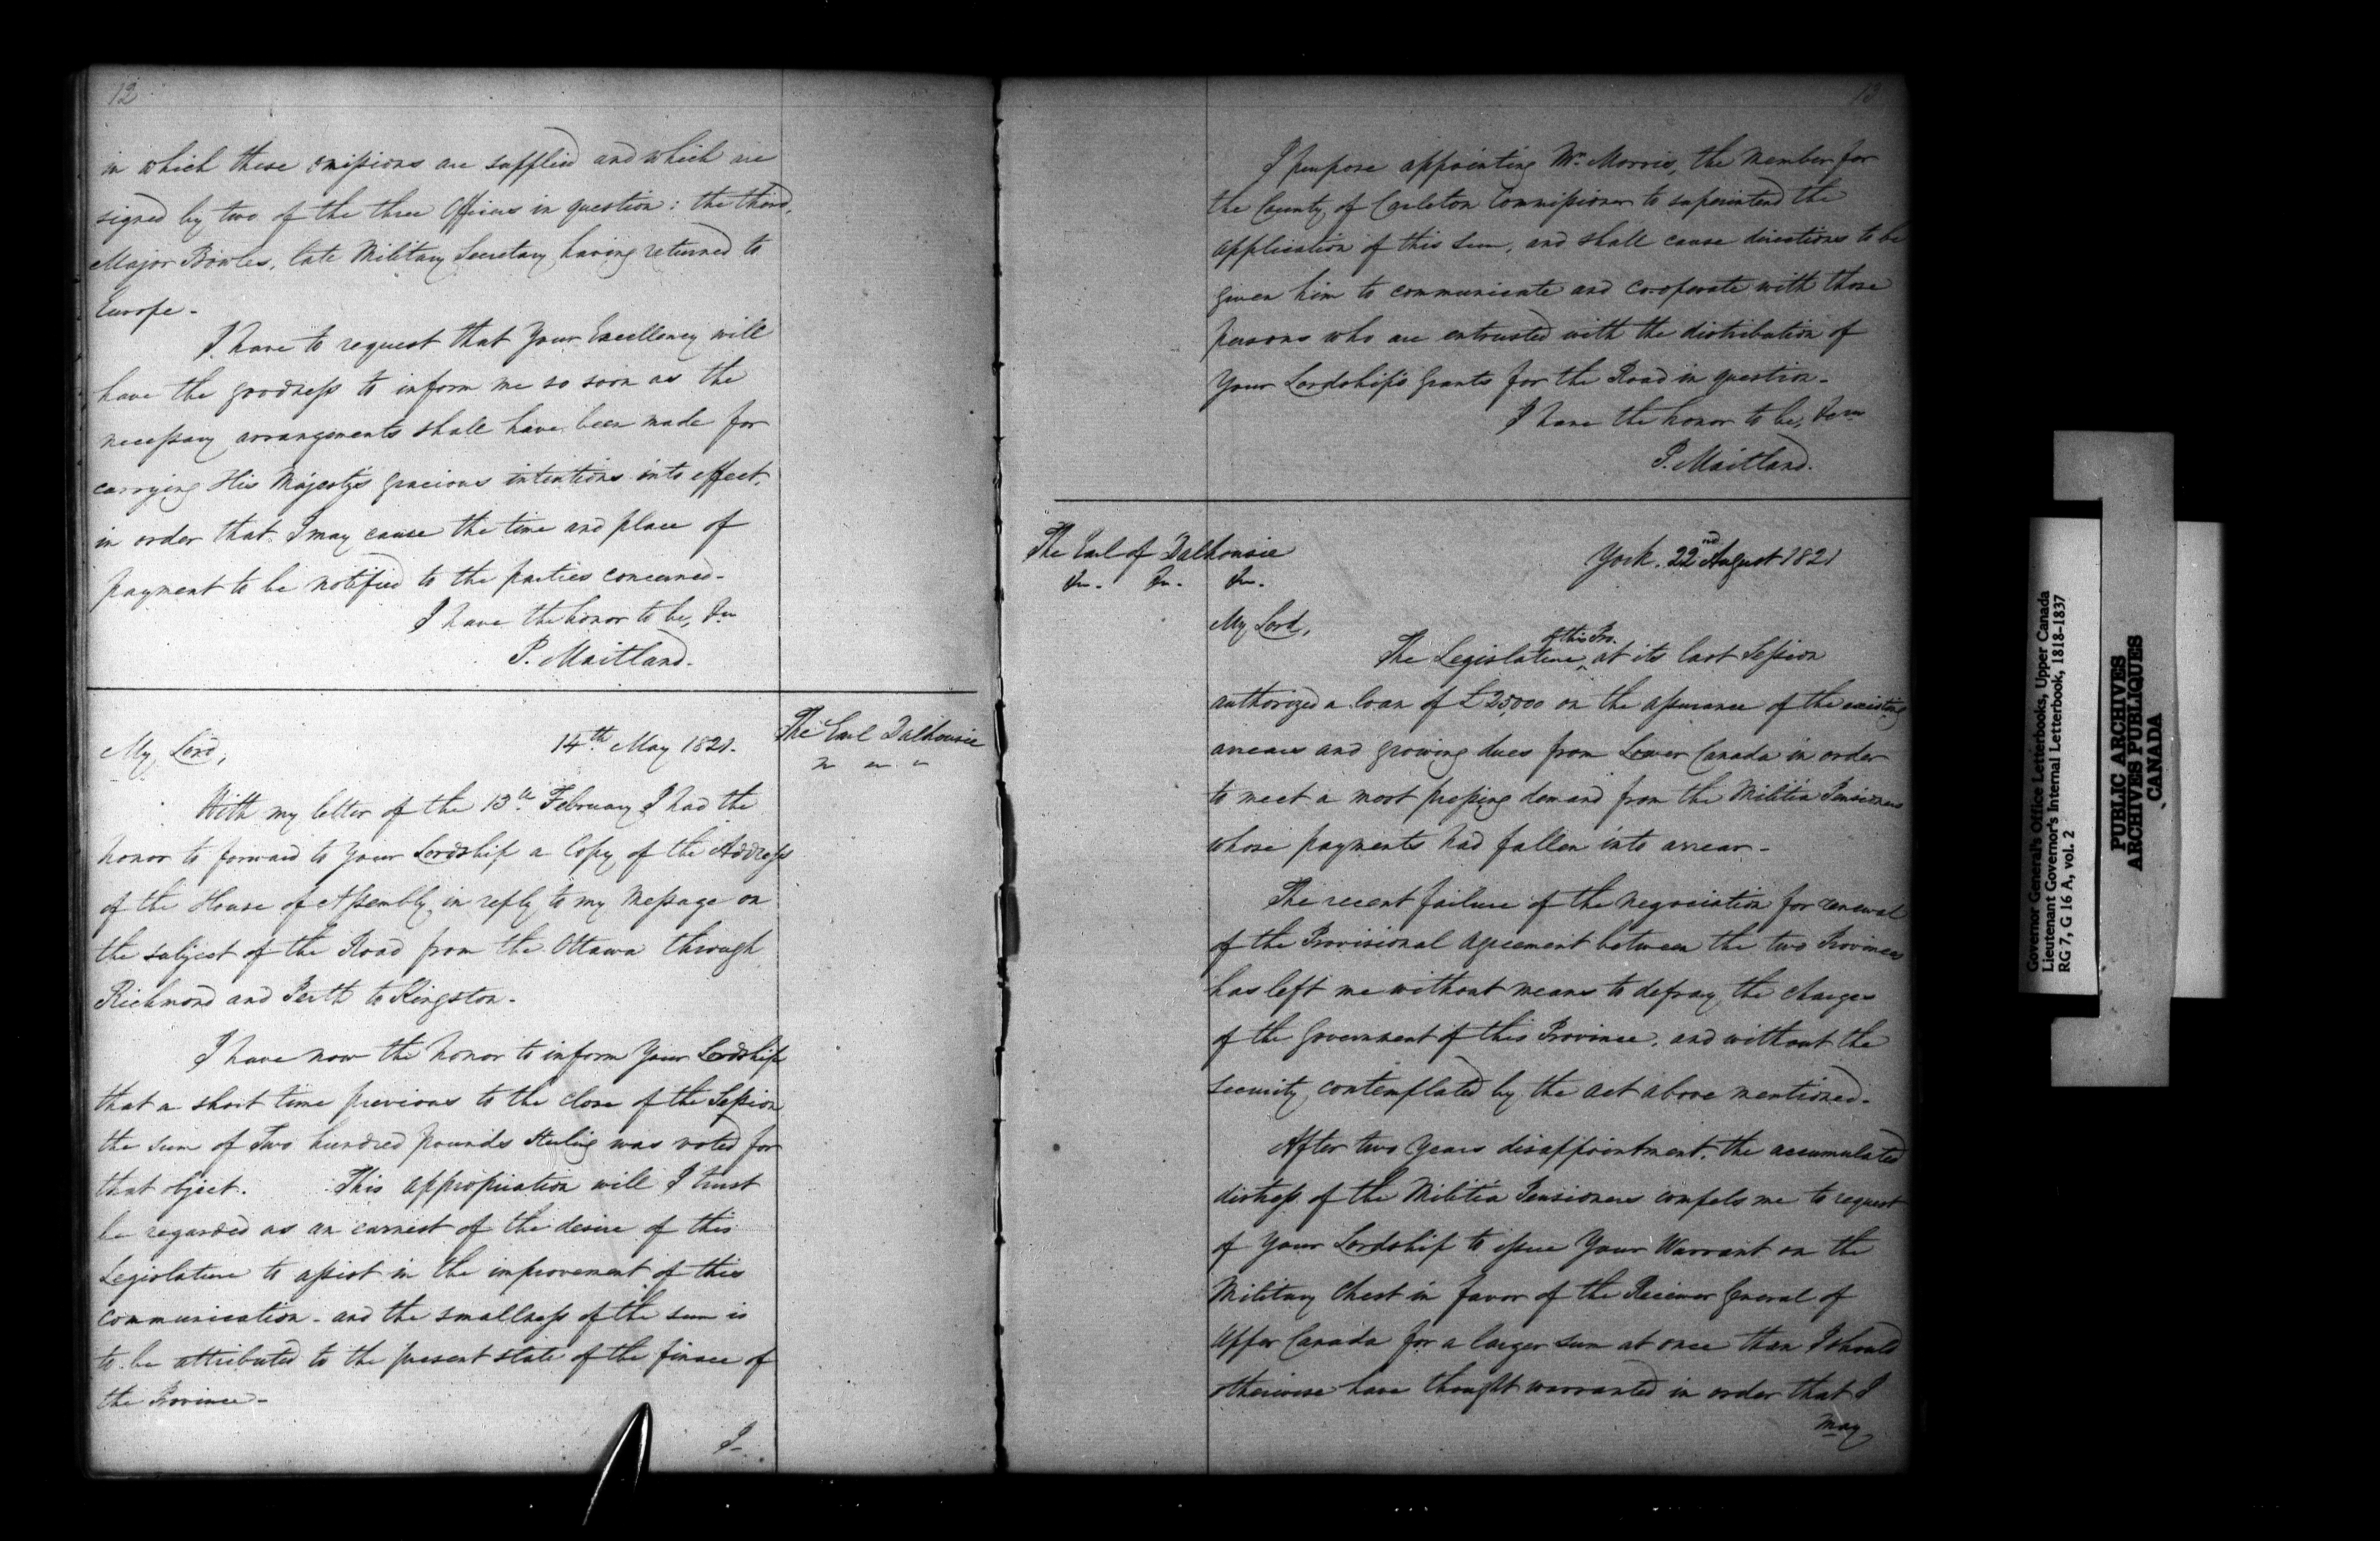 12
in which these omissions are supplied and which are
signed by two of the three Officers in question: the third,
Major Bowles, late Military Secretary having returned to
Europe -
I have to request that Your Excellency will
have the goodness to inform me so soon as the
necessary arrangements shall have been made for
carrying His Majesty's gracious intentions into effect,
in order that I may cause the time and place of
payment to be notified to the parties concerned -
I have the honor to be, &c
P. Maitland.
The Earl Dalhousie
My Lord,
14th May 1821.
With my letter of the 13th February I had the
honor to forward to Your Lordship a Copy of the Address
of the House of Assembly in reply to my Message on
the subject of the Road from the Ottawa through
Richmond and Perth to Kingston -
I have now the honor to inform Your Lordship
that a short time previous to the close of the Session
the sum of Two hundred pounds Sterling was voted for
that object. This appropriation will I trust
be regarded as an earnest of the desire of this
Legislature to assist in the improvement of this
communication - and the smallness of the sum is
to be attributed to the present state of the finace of
the Province -
I -
13
I purpose appointing Mr. Morris, the Member for
the County of Carleton Commissioner to superintend the
application of this sum, and shall cause directions to be
given him to communicate and co-operate with those
persons who are entrusted with the distribution of
Your Lordship's grants for the Road in question -
I have the honor to be, &c
P. Maitland.
The Earl of Dalhousie
&c. &c. &c.
York. 22nd August 1821
My Lord,
of this Pro.
The Legislature, at its last Session
authorized a loan of £25,000 on the assurance of the existing
arrears and growing dues from Lower Canada in order
to meet a most pressing demand from the Militia Pensioners
whose payments had fallen into arrear -
The recent failure of the negociation for renewal
of the Provisional agreement between the two Provinces
has left me without means to defray the charges
of the government of this Province, and without the
security contemplated by the act above mentioned -
After two Years disappointment, the accumulated
distress of the Militia Pensioners compels me to request
of Your Lordship to issue Your Warrant on the
Military Chest in favor of the Receiver General of
Upper Canada for a larger sum at once than I should
otherwise have thought warranted in order that I
may
Governor General's Office Letterbooks, Upper Canada
Lieutenant Governor's Internal Letterbook, 1818-1837
RG 7, G 16 A, vol. 2
PUBLIC ARCHIVES
ARCHIVES PUBLIQUES
CANADA